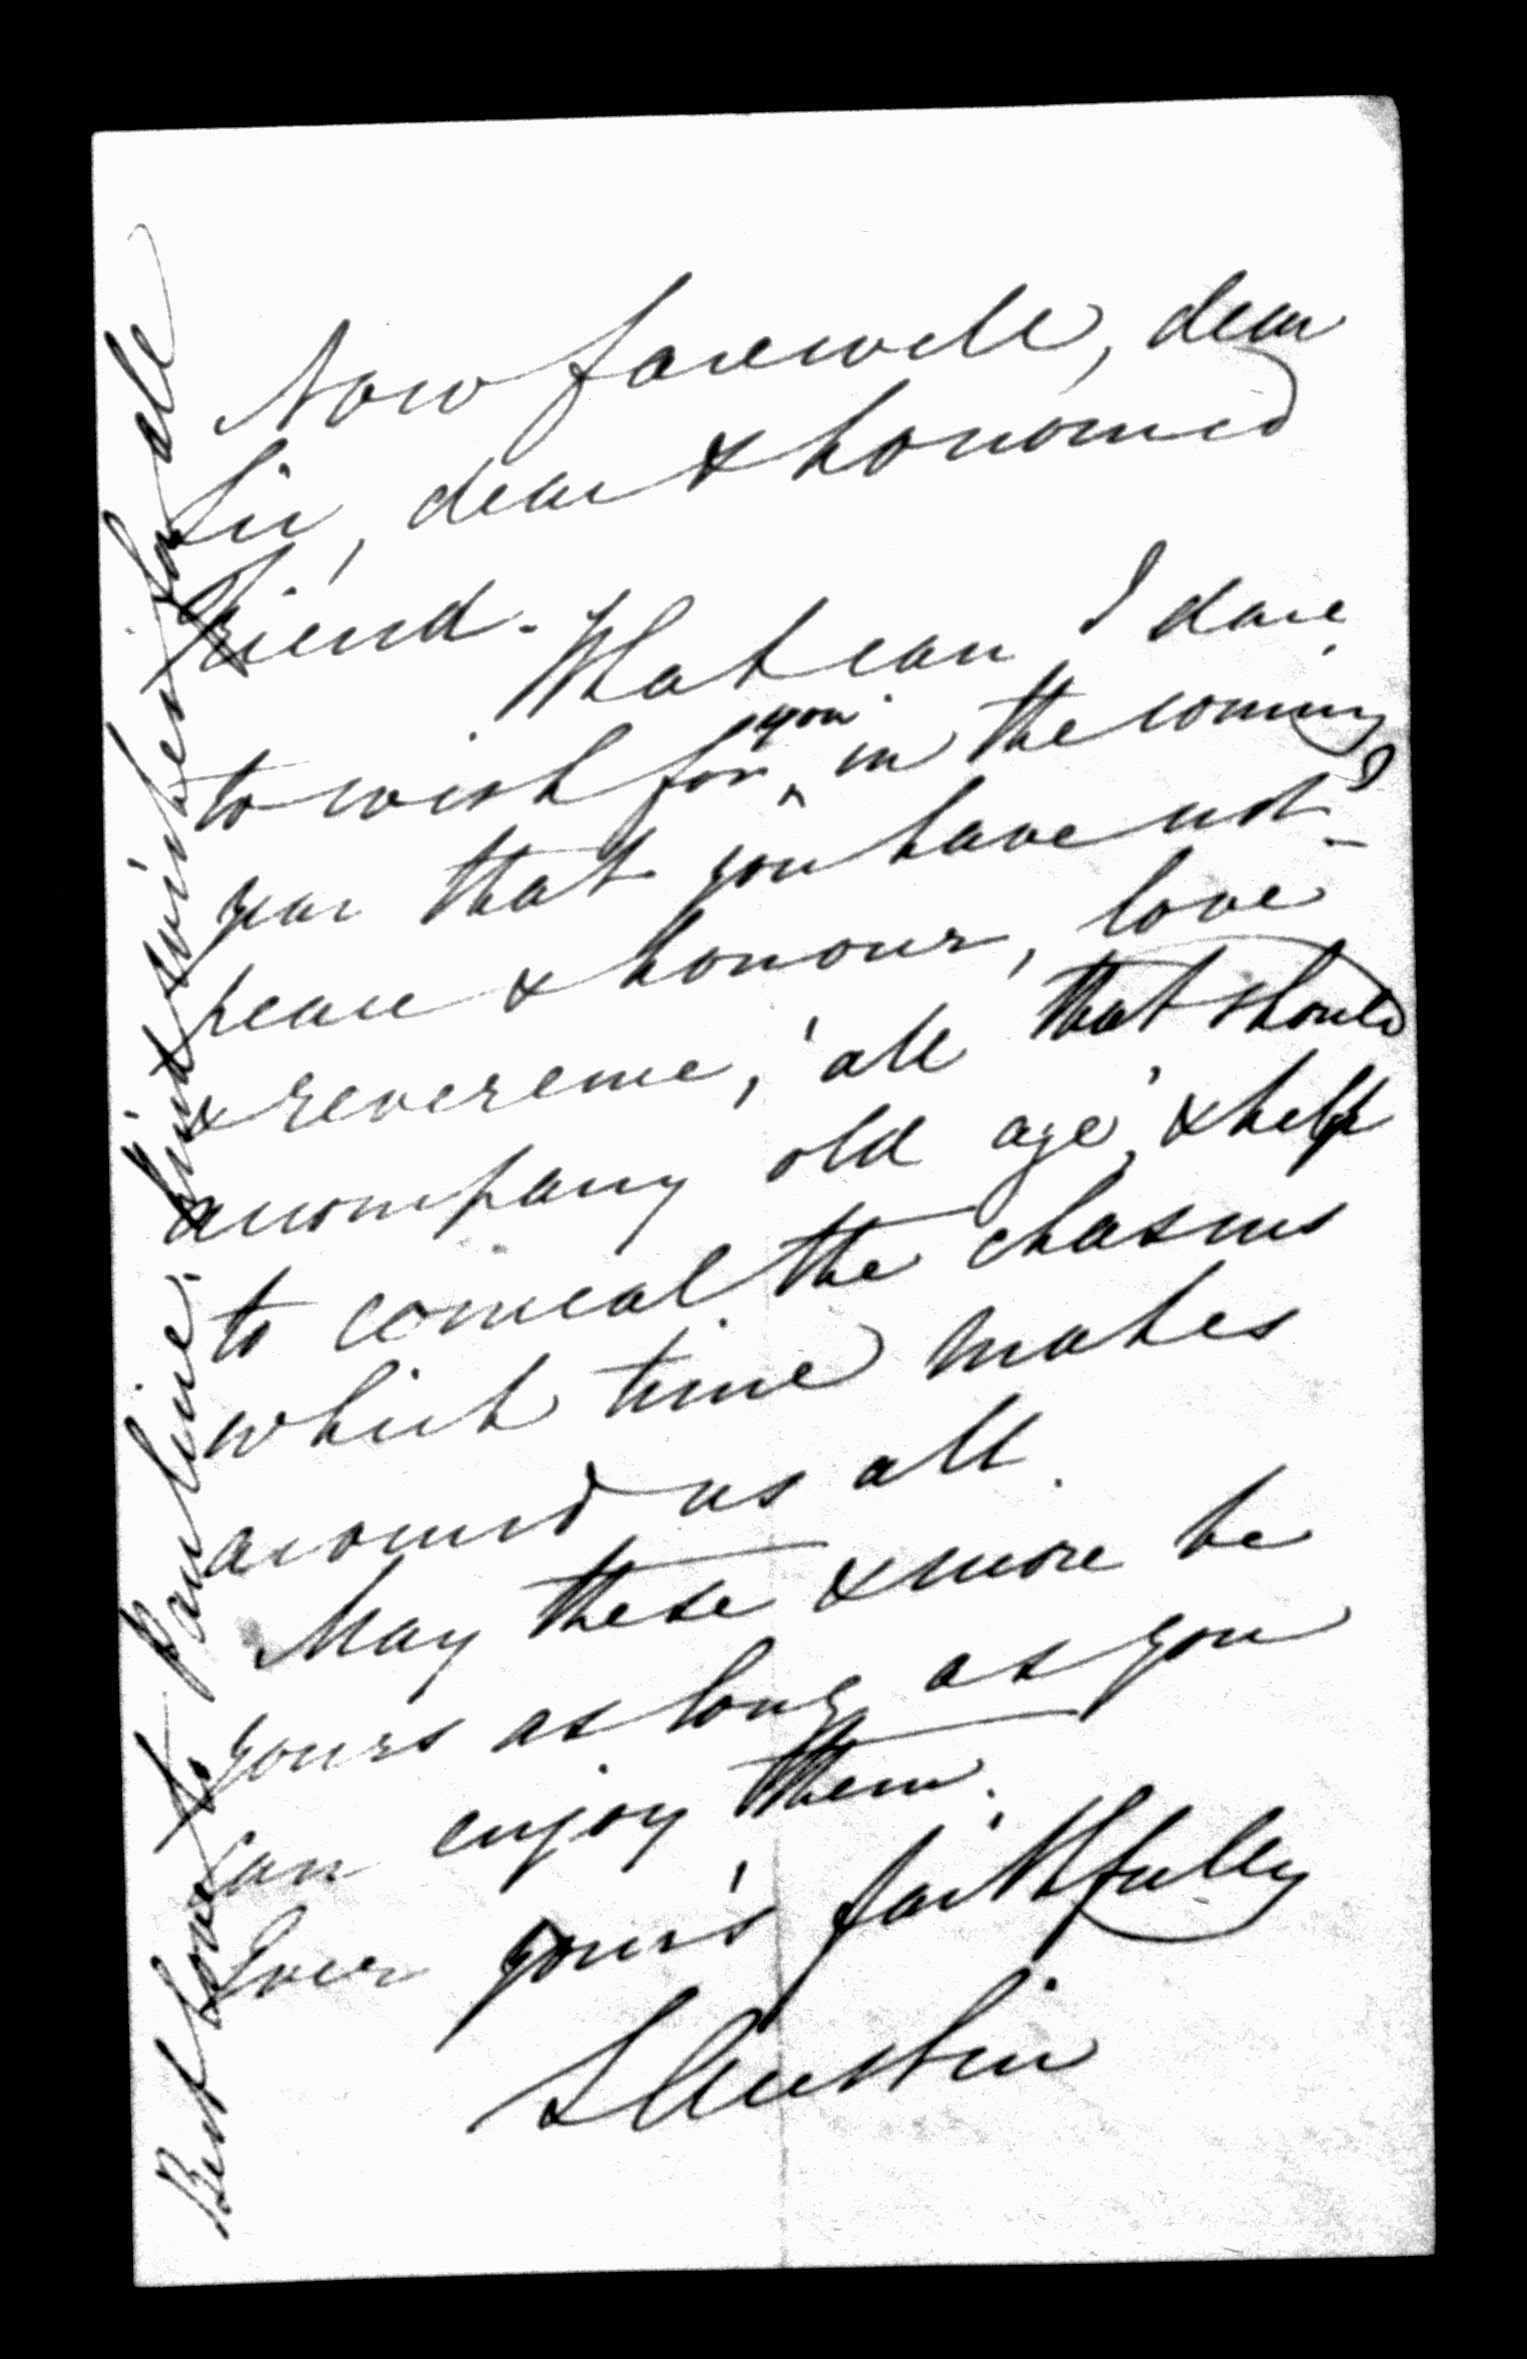 Now farewell, dear
Sir, dear & honoured
Friend. What can I dare
to wish for you in the coming
year that you have not?
peace & honour, love
& reverence, 'all that should
accompany old age', & help
to conceal the chasms
which time makes
around us all.
May these & more be
yours as long as you
can enjoy them.
Ever your's faithfully
S Austin
Best love to Pauline. Kind wishes for all